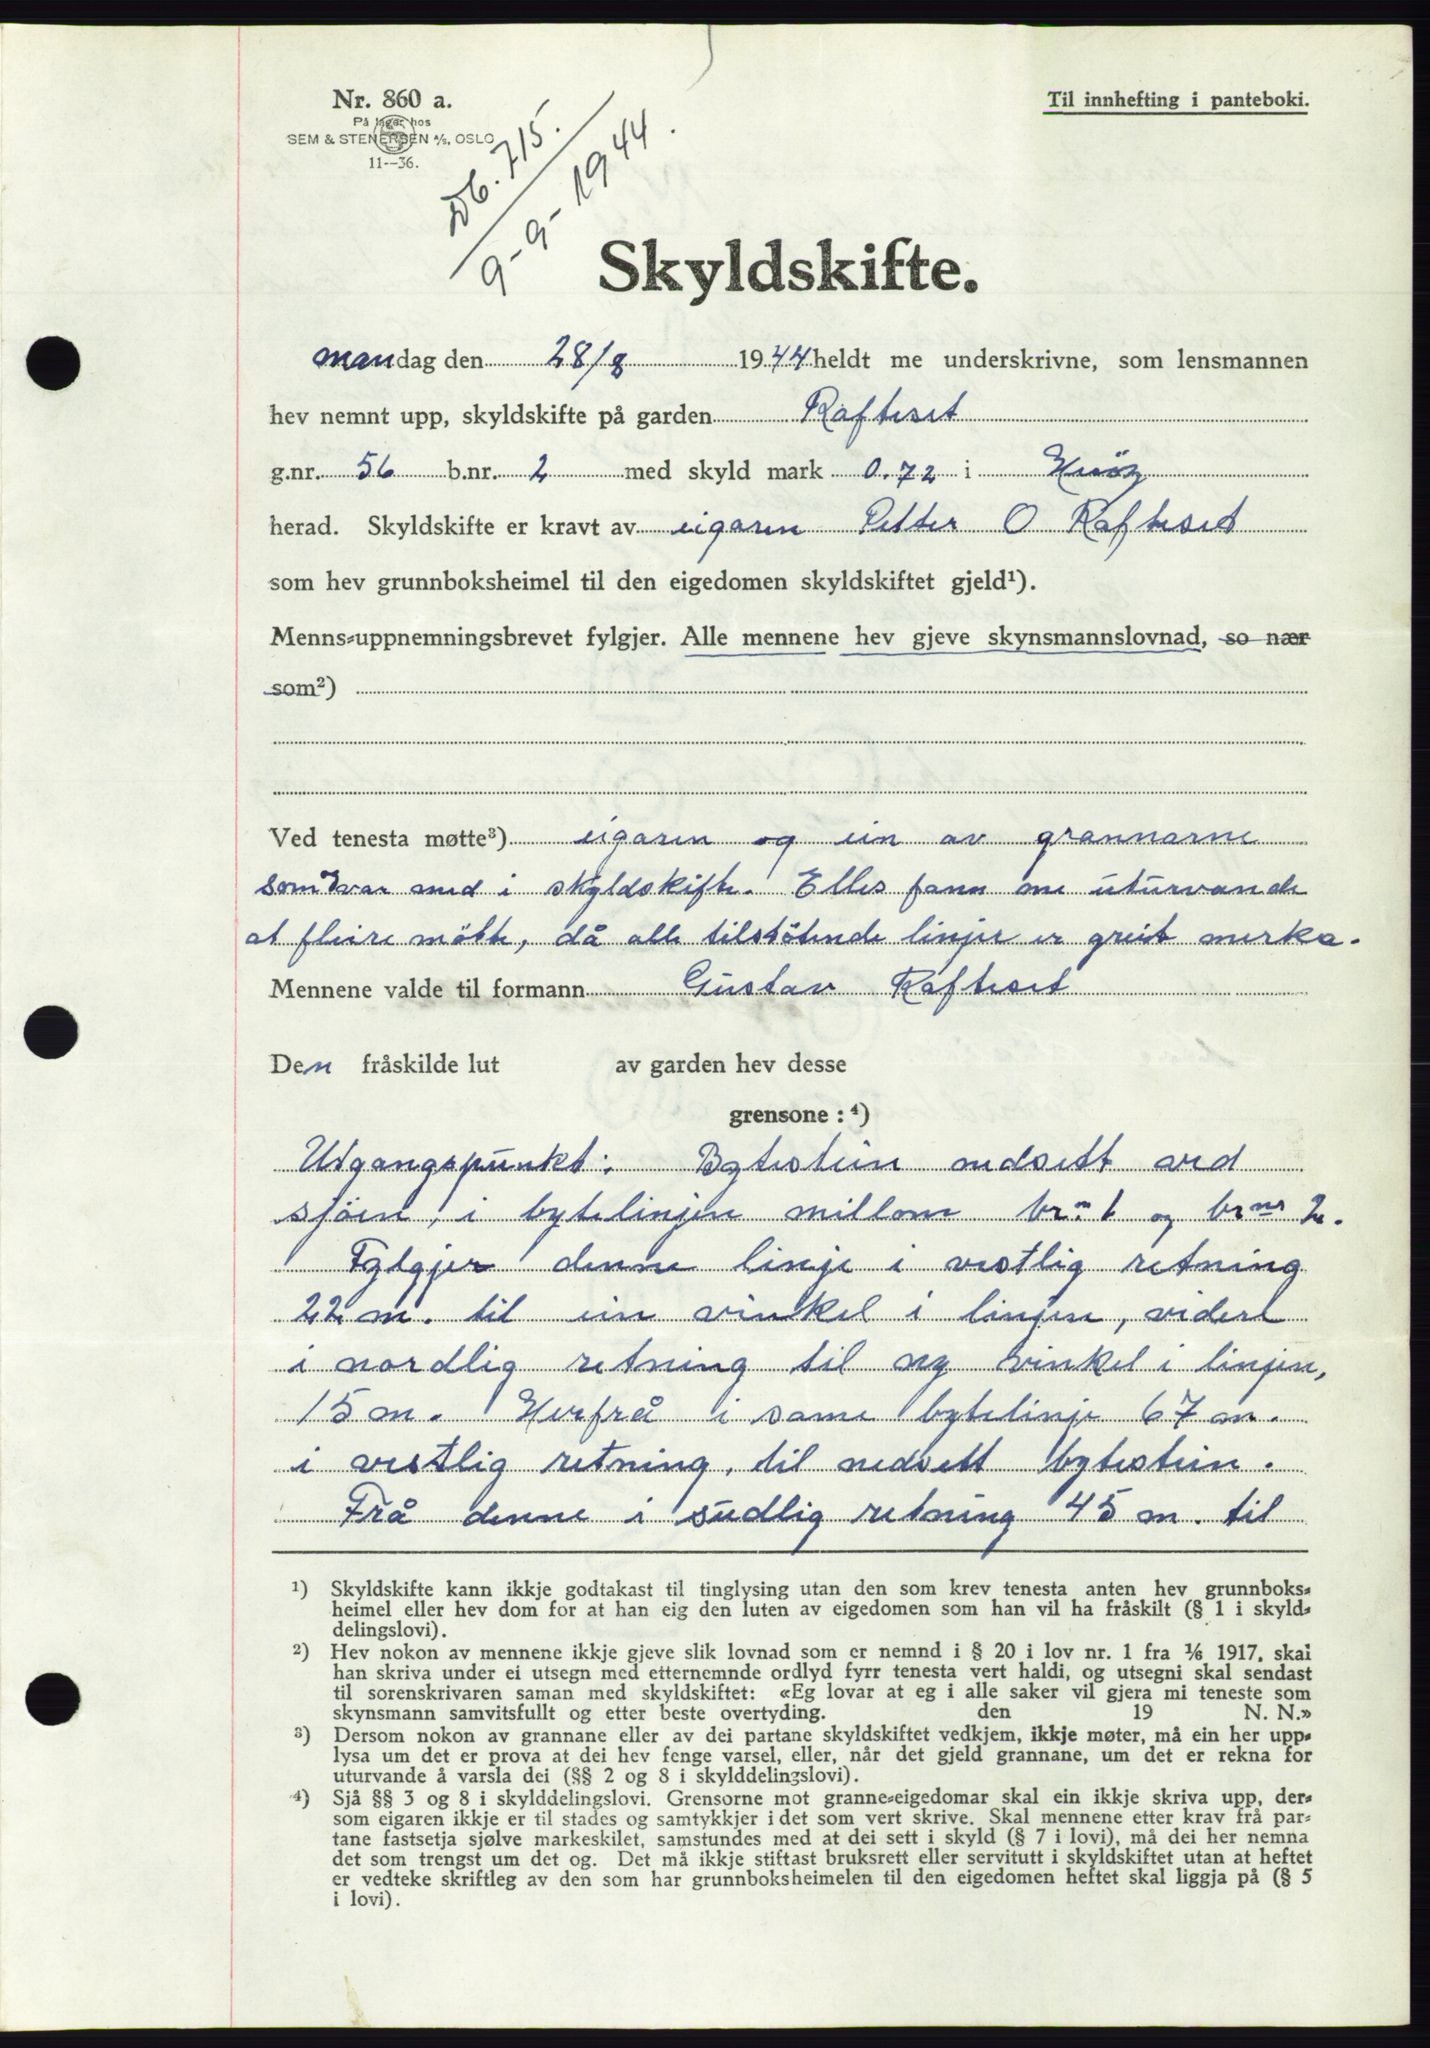 Nr. 860 a.
På lager hos
SEM & STENERSEN A/S, OSLO
11--36.
Til innhefting i panteboki.
Db. 715.
9-9-1944.
Skyldskifte.
mandag den 28/8 1944 heldt me underskrivne, som lensmannen
hev nemnt upp, skyldskifte på garden Rafteset
g.nr. 56 b.nr. 2 med skyld mark 0.72 i
herad. Skyldskifte er kravt av eigaren Petter O Rafteset
som hev grunnboksheimel til den eigedomen skyldskiftet gjeld¹).
Menns-uppnemningsbrevet fylgjer. Alle mennene hev gjeve skynsmannslovnad, so nær
som²)
Ved tenesta møtte³) eigaren og ein av grannarne
som var med i skyldskifte. Elles fann me uturvande
at fleire mötte, då alle tilstötende linjer er greit merka.
Mennene valde til formann Gustav Rafteset
Den fråskilde lut av garden hev desse
grensone : ⁴)
Utgangspunkt: Bytestein nedsett ved
sjöen, i bytelinjen millom br.nr 1 og br nr 2.
Fylgjer denne linje i vestlig retning
22 m. til ein vinkel i linjen, videre
i nordlig retning til ny vinkel i linjen,
15 m. Herfrå i same bytelinje 67 m.
i vestlig retning, til nedsett bytestein.
Frå denne i sudlig retning 45 m. til
¹) Skyldskifte kann ikkje godtakast til tinglysing utan den som krev tenesta anten hev grunnboks-
heimel eller hev dom for at han eig den luten av eigedomen som han vil ha fråskilt (§ 1 i skyld-
delingslovi).
²) Hev nokon av mennene ikkje gjeve slik lovnad som er nemnd i § 20 i lov nr. 1 fra 1/6 1917, skal
han skriva under ei utsegn med etternemnde ordlyd fyrr tenesta vert haldi, og utsegni skal sendast
til sorenskrivaren saman med skyldskiftet: «Eg lovar at eg i alle saker vil gjera mi teneste som
skynsmann samvitsfullt og etter beste overtyding. den 19 N. N.»
³) Dersom nokon av grannane eller av dei partane skyldskiftet vedkjem, ikkje møter, må ein her upp-
lysa um det er prova at dei hev fenge varsel, eller, når det gjeld grannane, um det er rekna for
uturvande å varsla dei (§§ 2 og 8 i skylddelingslovi).
⁴) Sjå §§ 3 og 8 i skylddelingslovi. Grensorne mot granne-eigedomar skal ein ikkje skriva upp, der-
som eigaren ikkje er til stades og samtykkjer i det som vert skrive. Skal mennene etter krav frå par-
tane fastsetja sjølve markeskilet, samstundes med at dei sett i skyld (§ 7 i lovi), må dei her nemna
det som trengst um det og. Det må ikkje stiftast bruksrett eller servitutt i skyldskiftet utan at heftet
er vedteke skriftleg av den som har grunnboksheimelen til den eigedomen heftet skal liggja på (§ 5
i lovi).